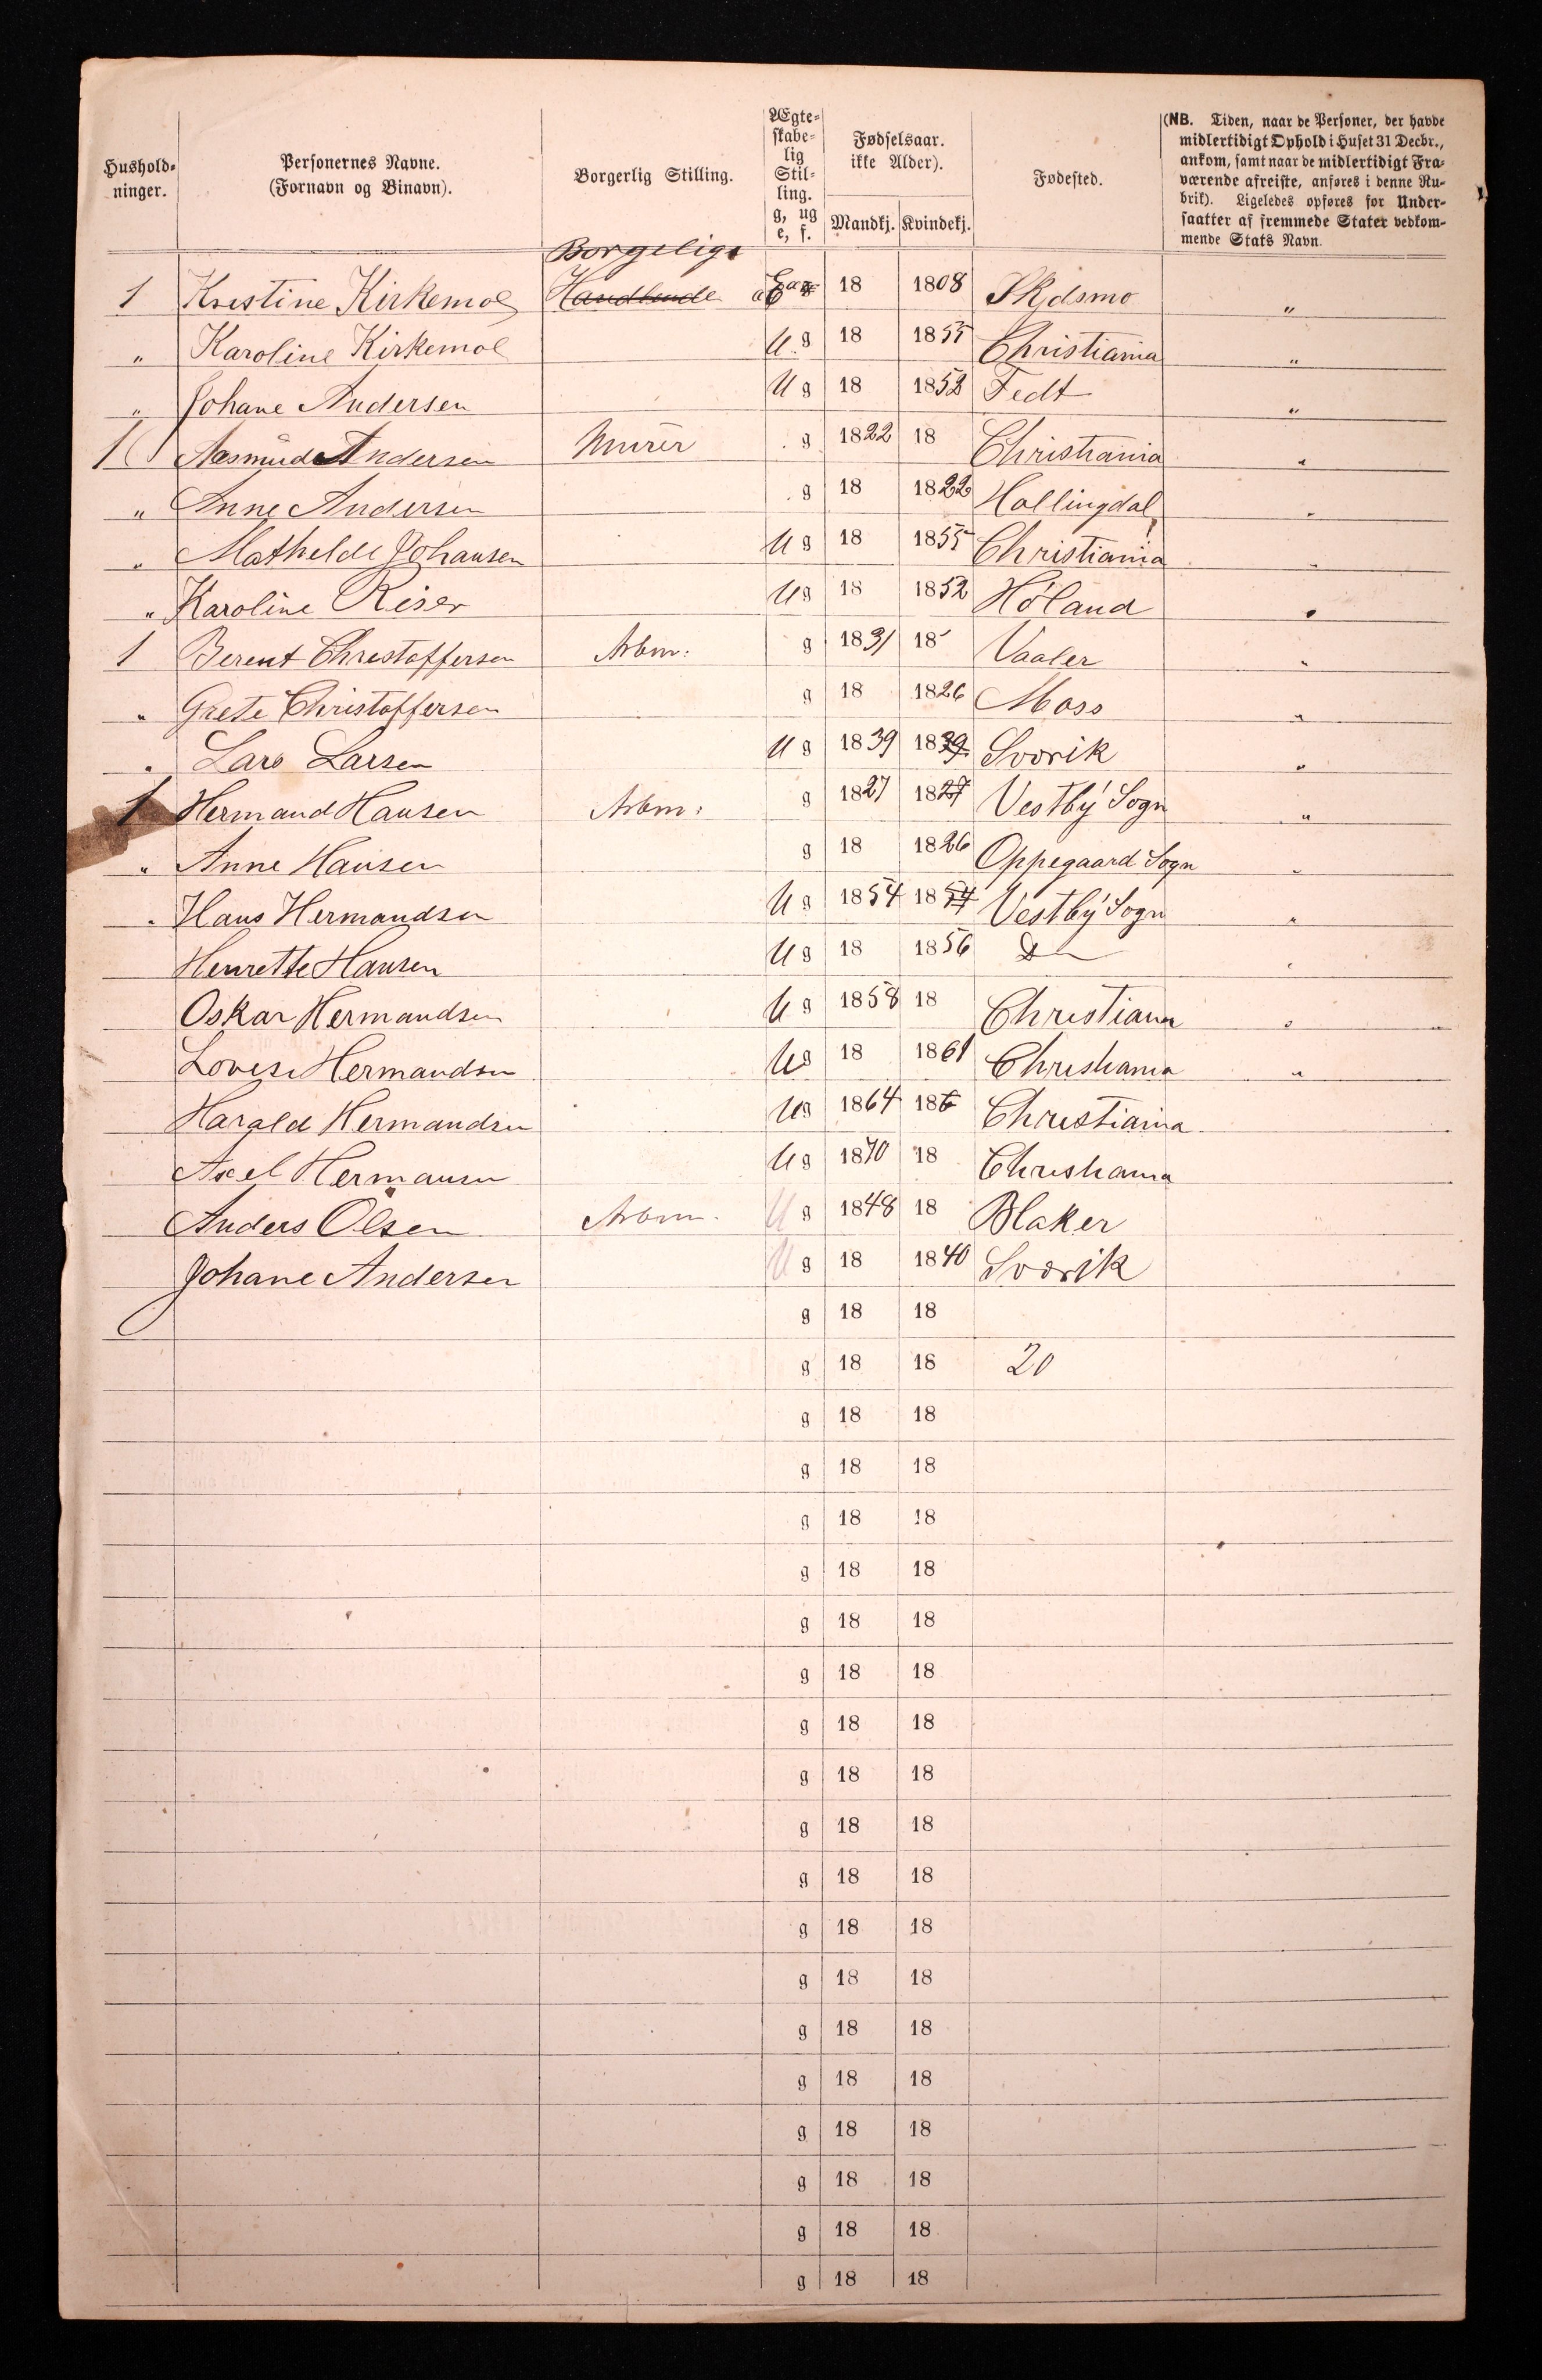 Hushold-
ninger.
Personernes Navne.
(Fornavn og Binavn).
Borgerlig Stilling.
Ægte-
skabe-
lig
Stil-
ling.
g, ug
e, f.
Fødselsaar.
ikke Alder).
Mandkj. Kvindekj.
Fødested.
(NB. Tiden, naar de Personer, der havde
midlertidigt Ophold i Huset 31 Decbr.,
ankom, samt naar de midlertidigt Fra-
værende afreiste, anføres i denne Ru-
brik). Ligeledes opføres for Under-
saatter af fremmede Stater vedkom-
mende Stats Navn.
Borgelige
1 Kristine Kirkemoe Handlende 18 1808 Skjdsmo "
" Karoline Kirkemoe U g 18 1855 Christiania "
" Johane Andersen U g 18 1852 Fedt "
1 Aasmüd Andersen Murer g 1822 18 Christiania "
" Anne Andersen g 18 1822 Hallingdal "
" Mathelde Johansen U g 18 1855 Christiania "
" Karoline Riser U g 18 1852 Höland "
1 Berent Christoffersen Arbm: g 1831 18 Vaaler "
" Grete Christoffersen g 18 1826 Moss "
" Lars Larsen U g 1839 1839 Sværik "
1 Hermand Hansen Arbm: g 1827 1827 Vestby Sogn "
" Anne Hansen g 18 1826 Oppegaard Sogn "
" Hans Hermandsen U g 1854 1854 Vestby Sogn "
Henrette Hansen U g 18 1856 D "
Oskar Hermandsen U g 1858 18 Christiana "
Lovise Hermandsen U g 18 1861 Christiania "
Harald Hermandsen U g 1864 186 Christiania
Axel Hermansen U g 1870 18 Christiania
Anders Olsen Arbm. U g 1848 18 Blaker
Johane Andersen U g 18 1840 Sværik
g 18 18
g 18 18 20
g 18 18
g 18 18
g 18 18
g 18 18
g 18 18
g 18 18
g 18 18
g 18 18
g 18 18
g 18 18
g 18 18
g 18 18
g 18 18
g 18 18
g 18 18
g 18 18
g 18 18
g 18 18